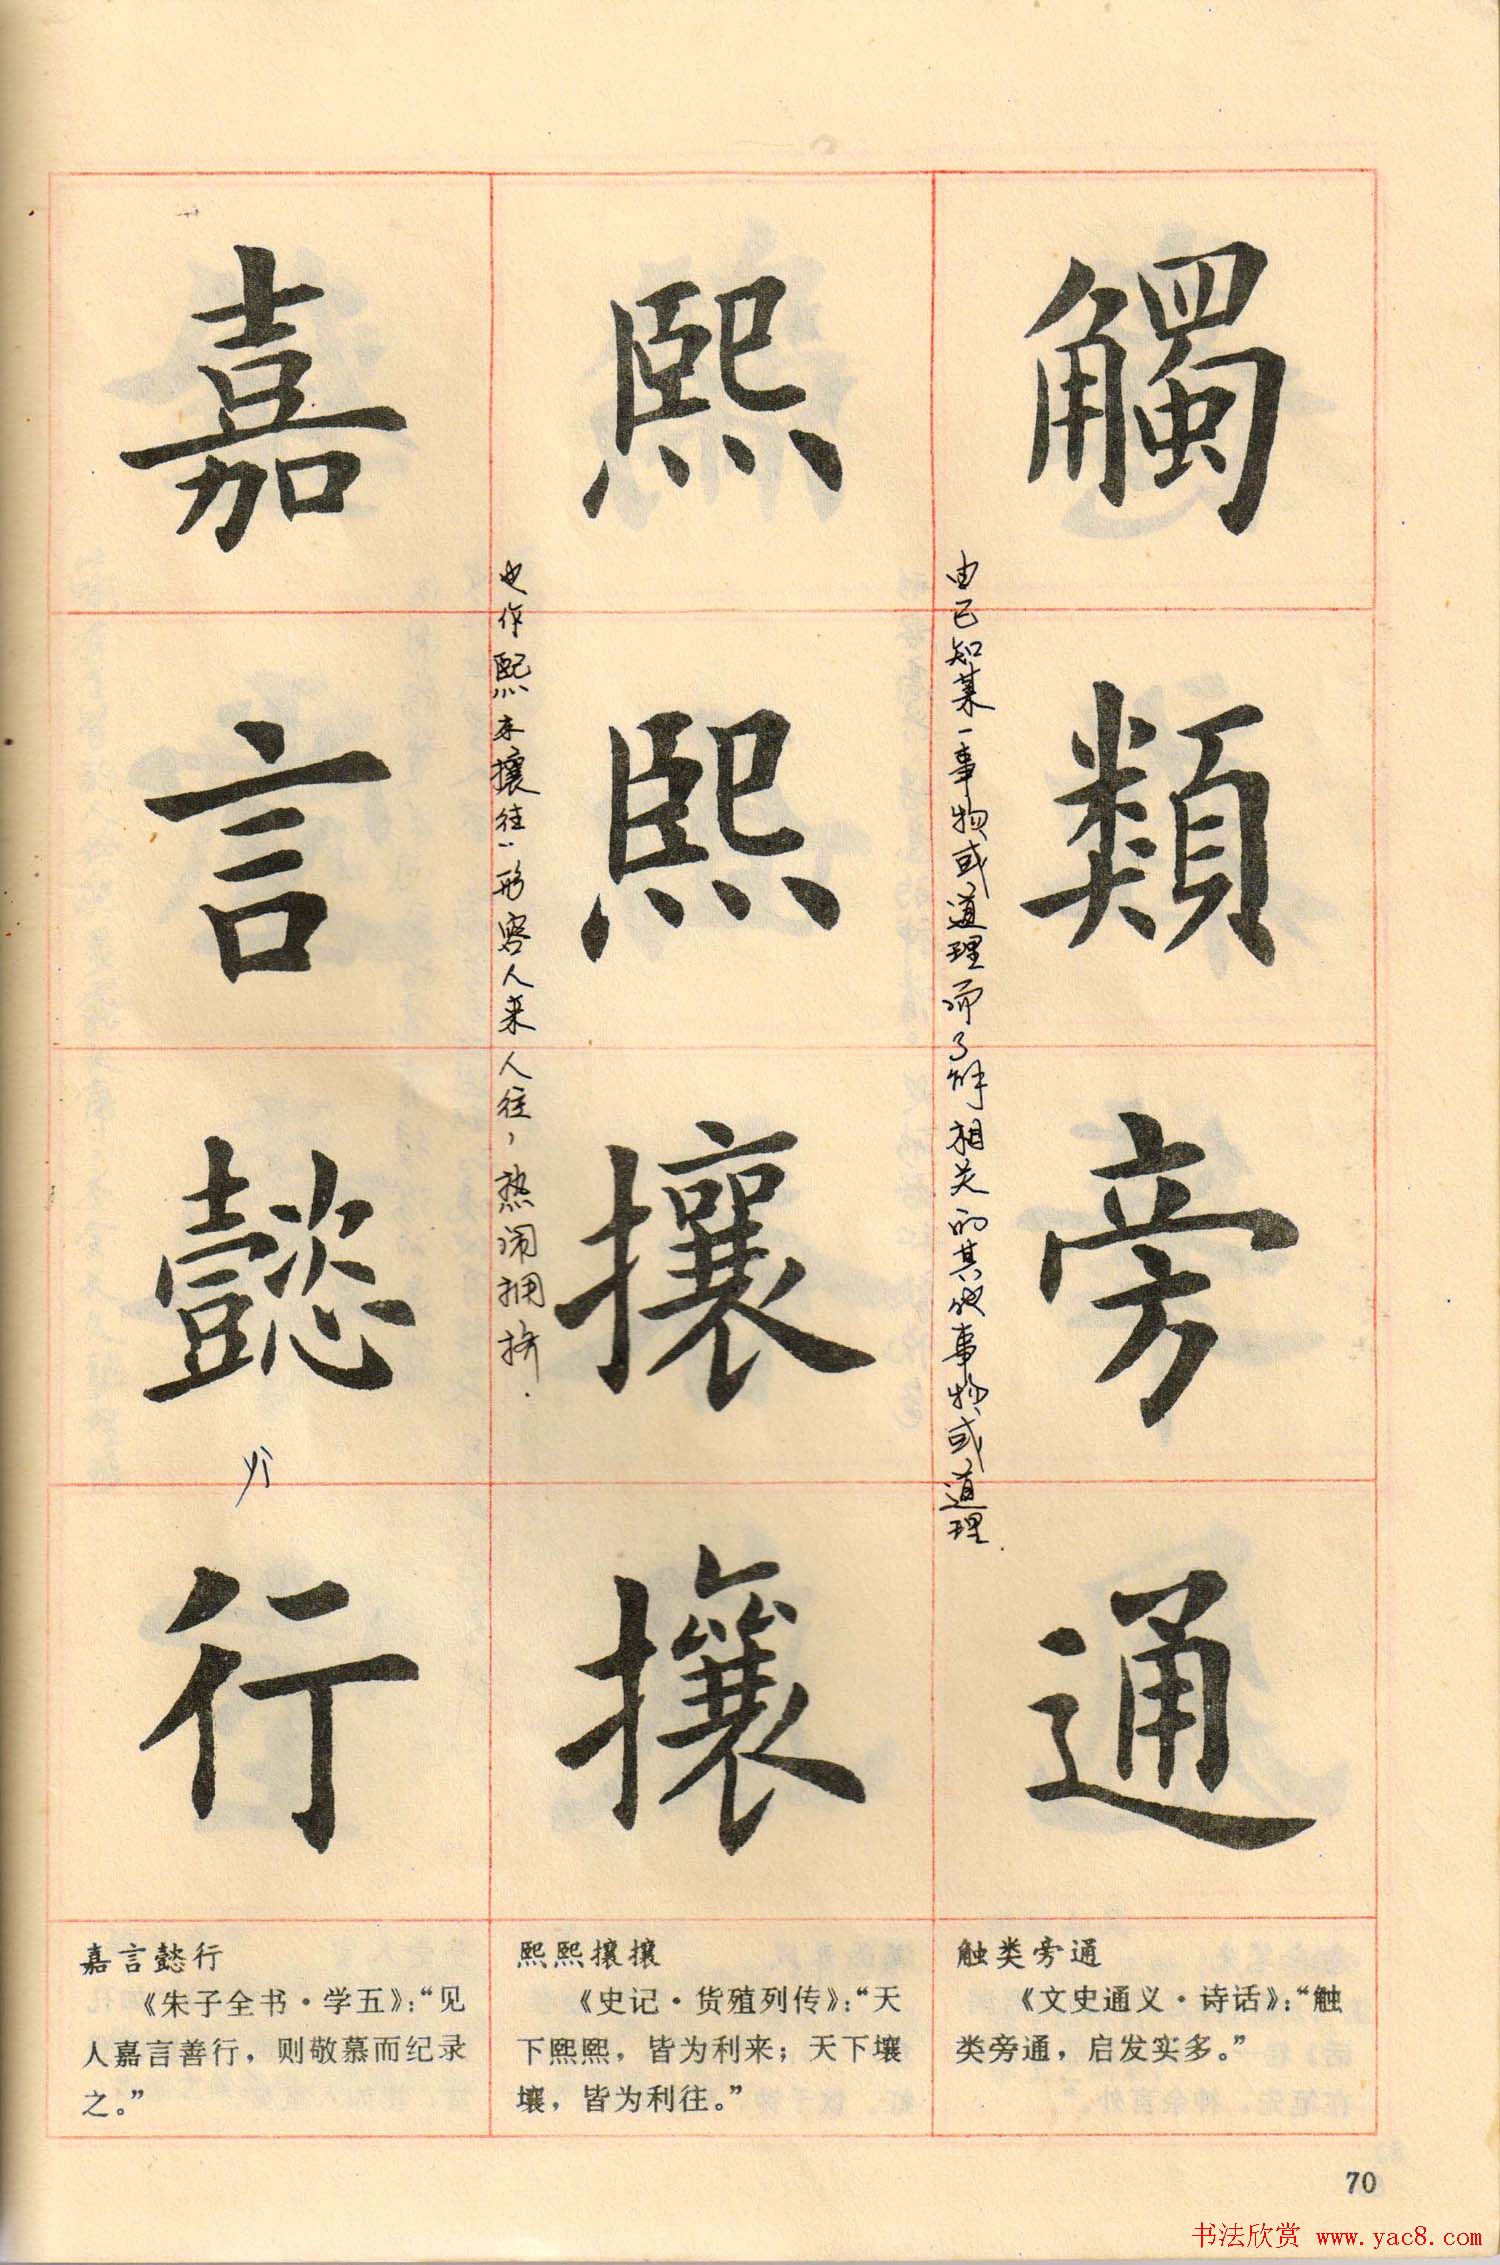 觸類旁通
由已知某一事物或道理而了解相关的其他事物或道理.
熙熙攘攘
也作熙来攘往:形容人来人往,热闹拥挤.
嘉言懿行
触类旁通
《文史通义·诗话》:“触
类旁通，启发实多。”
熙熙攘攘
《史记·货殖列传》:“天
下熙熙，皆为利来；天下壤
壤，皆为利往。”
嘉言懿行
《朱子全书·学五》:“见
人嘉言善行，则敬慕而纪录
之。”
70
书法欣赏 www.yac8.com